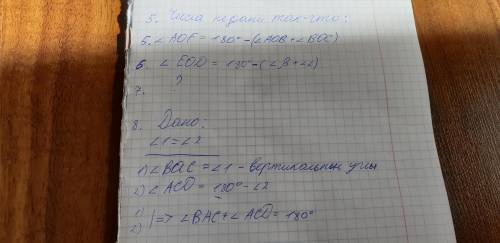 5. Числа не даны так-что:
5. ∠AOF = 180° - (∠AOB + ∠BOC)
6. ∠EOD = 180° - (∠β + ∠L)
?
7.
8. Дано:
∠1 = ∠2
1) ∠BAC = ∠1 - вертикальные углы
2) ∠ACD = 180° - ∠2
1)
2) | => ∠BAC + ∠ACD = 180°